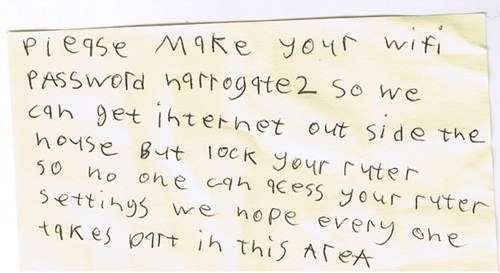 Please Make your wifi
PASSword harrogate2 so we
can get internet out side the
house But lock your ruter
so no one can acess your ruter
settings we hope every one
takes part in this AreA